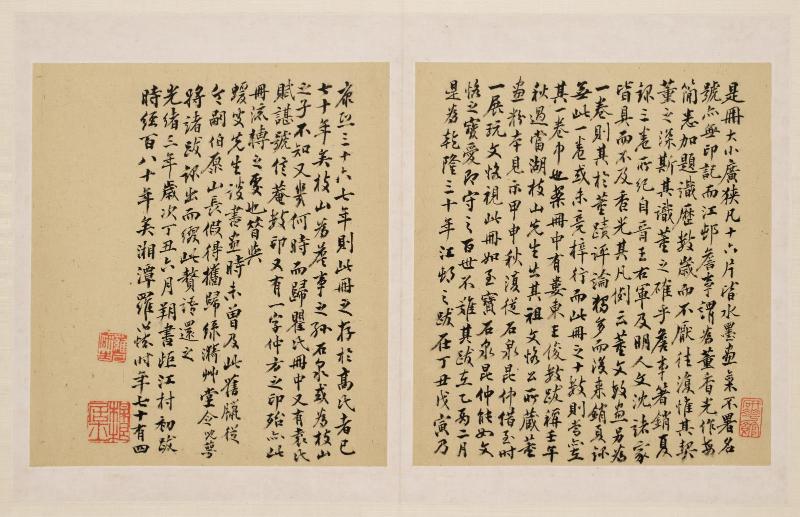 是冊大小廣狹凡十六片皆水墨畫氣不署名
號亦無印記而江邨詹事謂為董香光作每
簡悉加題識歷數歲而不厭往復惟其契
董之深斯其識董之確乎詹事著銷夏
錄三卷所紀自晉王右軍及明人文沈諸家
皆具而不及香光其凡例云董文敏畫另為
一卷則其於董蹟評論獨多而後來銷夏錄
無此一卷或未竟梓行而此冊之十數則當豈
其一卷中也葉冊中有婁東王俊數跋稱壬午
秋過當湖枝山先生出其祖文恪公所藏董
畫粉本見示甲申秋復從石泉昆仲借至時
一展玩文恪視此冊如至寶石泉昆仲能如文
恪之寶愛即守之百世不難其跋在乙酉二月
是為乾隆三十年江邨之跋在丁丑戊寅乃
康熙三十六七年則此冊之存於高氏者已
七十年矣枝山為詹事之孫石泉或為枝山
之子不知又幾何時而歸瞿氏冊中又有袁氏
賦諶號信菴數印又有一字仲方之印殆亦此
冊流轉之處也昔與
蝯叟先生談書畫時未曾及此舊儲從
令嗣伯原山長假得攜歸綠漪艸堂令兒萼
將諸跋錄出而綴此贅語還之
光緒三年歲次丁丑六月朔書距江村初跋
時經百八十年矣湘潭羅汝懷時年七十有四